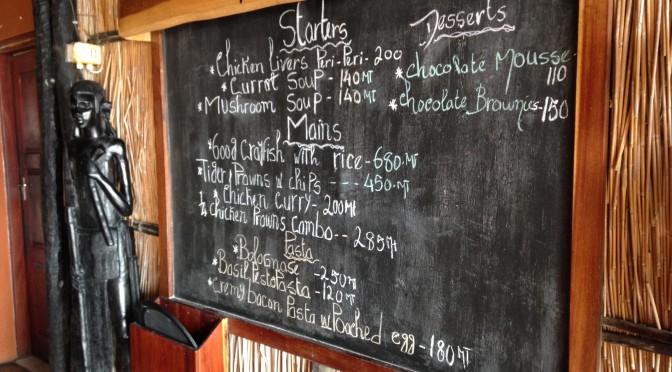 Starters
*Chicken Livers Peri-Peri-200
*Currot Soup - 140MT
*Mushroom Soup - 140MT
Mains
*600g Crayfish with rice-680MT
Tiger Prawns w chips --- 450MT
*Chicken Curry - 200Mt
1/4 chicken Prawns combo -- 285Mt
Pasta
*Bolognase - 250MT
*Basil Pesto Pasta - 120MT
*Cremy bacon Pasta w Poached egg - 180MT
Desserts
*chocolate Mousse-
110
*chocolate Brownies-150